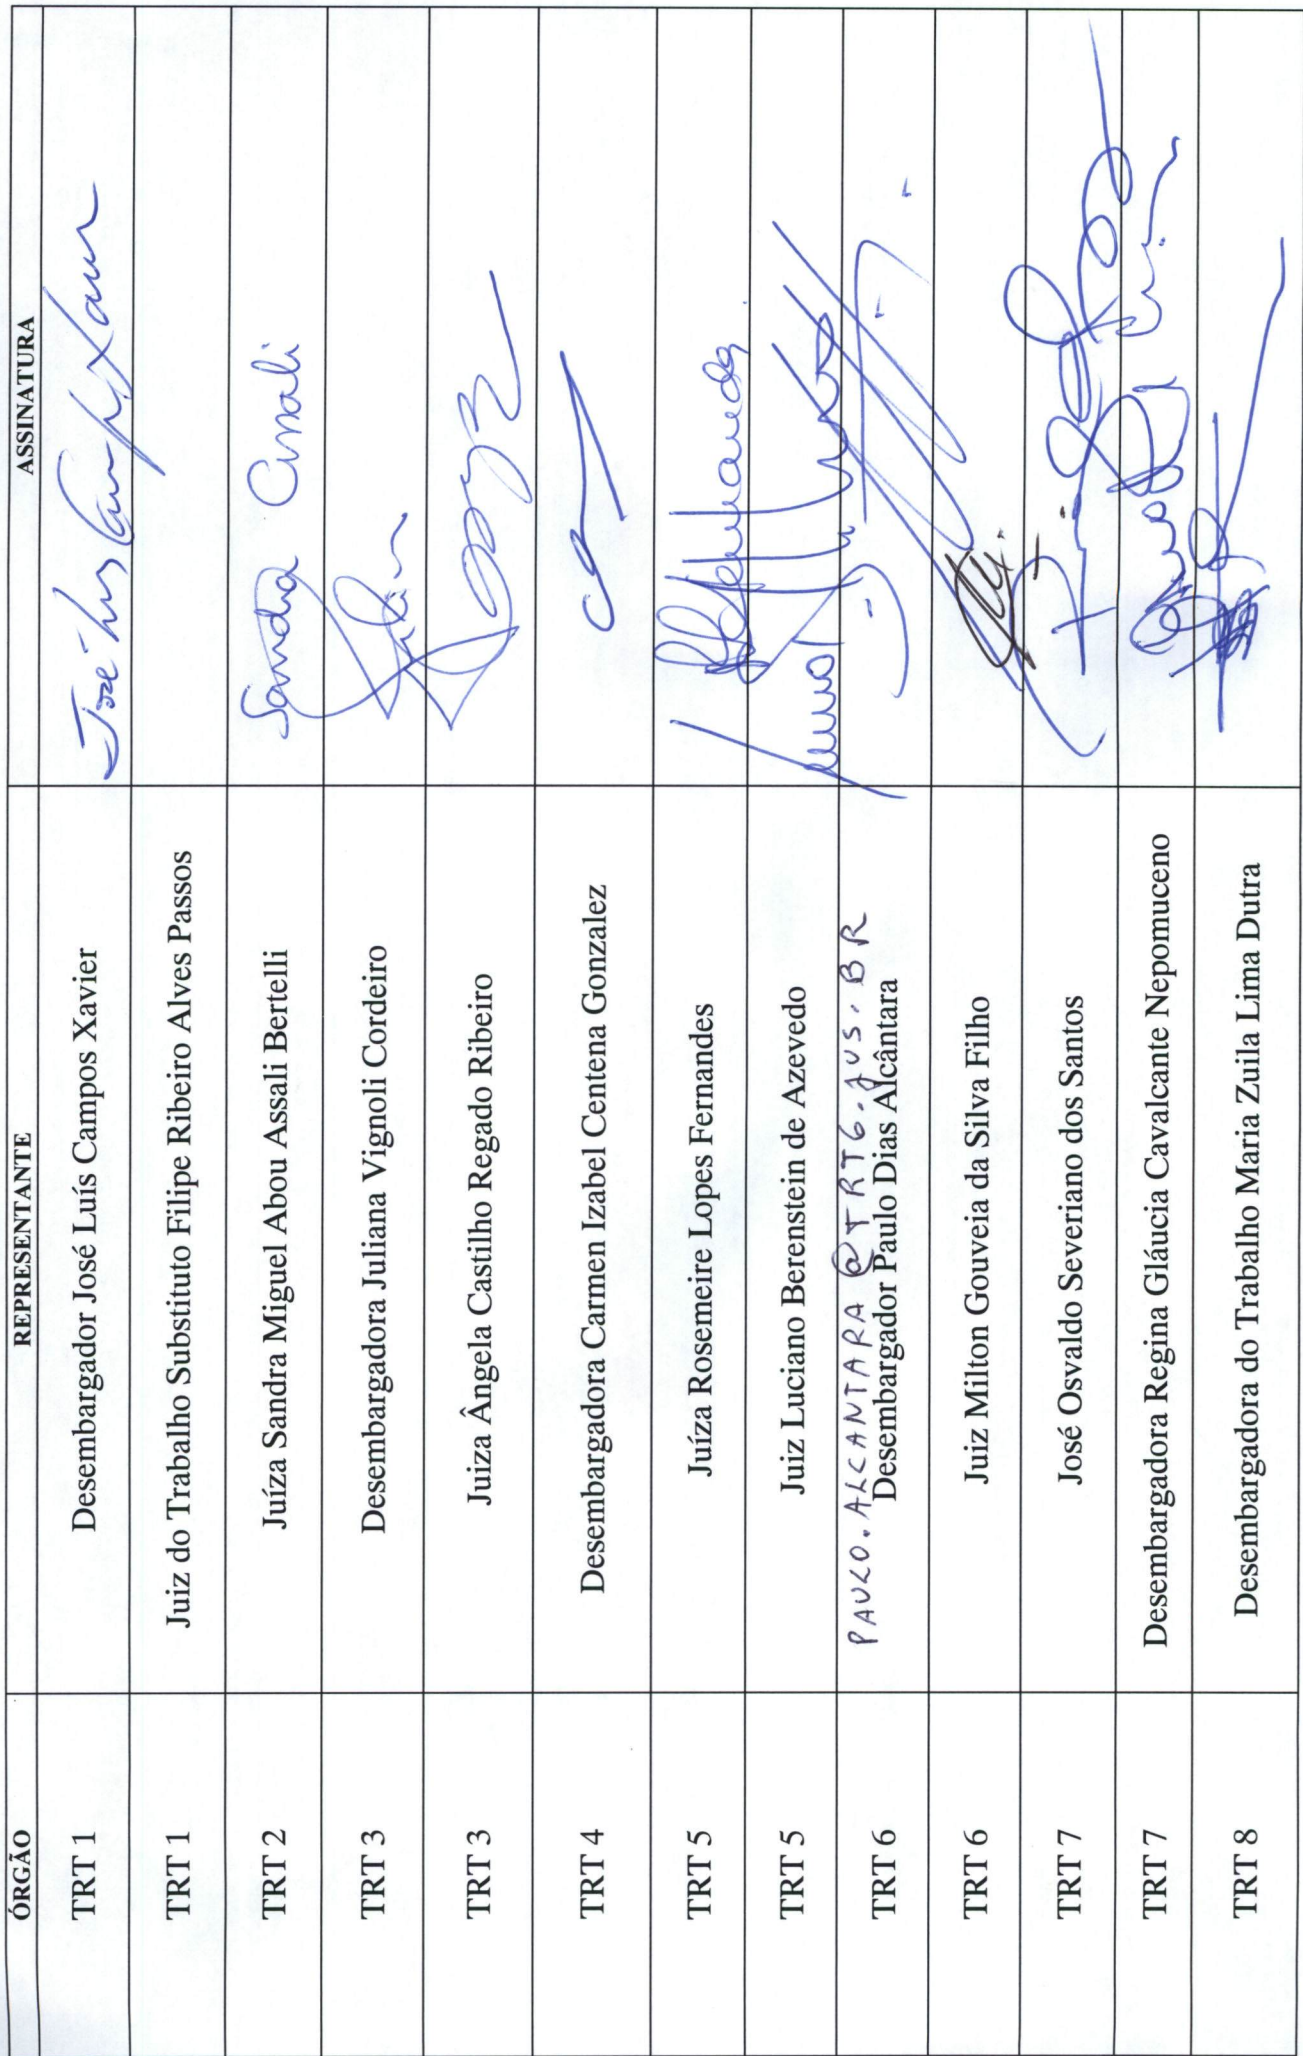 ÓRGÃO REPRESENTANTE ASSINATURA
TRT 1 Desembargador José Luís Campos Xavier José Luiz Campos Xavier
TRT 1 Juiz do Trabalho Substituto Filipe Ribeiro Alves Passos
TRT 2 Juíza Sandra Miguel Abou Assali Bertelli Sandra Assali
TRT 3 Desembargadora Juliana Vignoli Cordeiro
TRT 3 Juiza Ângela Castilho Regado Ribeiro
TRT 4 Desembargadora Carmen Izabel Centena Gonzalez
TRT 5 Juíza Rosemeire Lopes Fernandes
TRT 5 Juiz Luciano Berenstein de Azevedo
PAULO.ALCANTARA@TRT6.JUS.BR
TRT 6 Desembargador Paulo Dias Alcântara
TRT 6 Juiz Milton Gouveia da Silva Filho
TRT 7 José Osvaldo Severiano dos Santos
TRT 7 Desembargadora Regina Gláucia Cavalcante Nepomuceno
TRT 8 Desembargadora do Trabalho Maria Zuila Lima Dutra